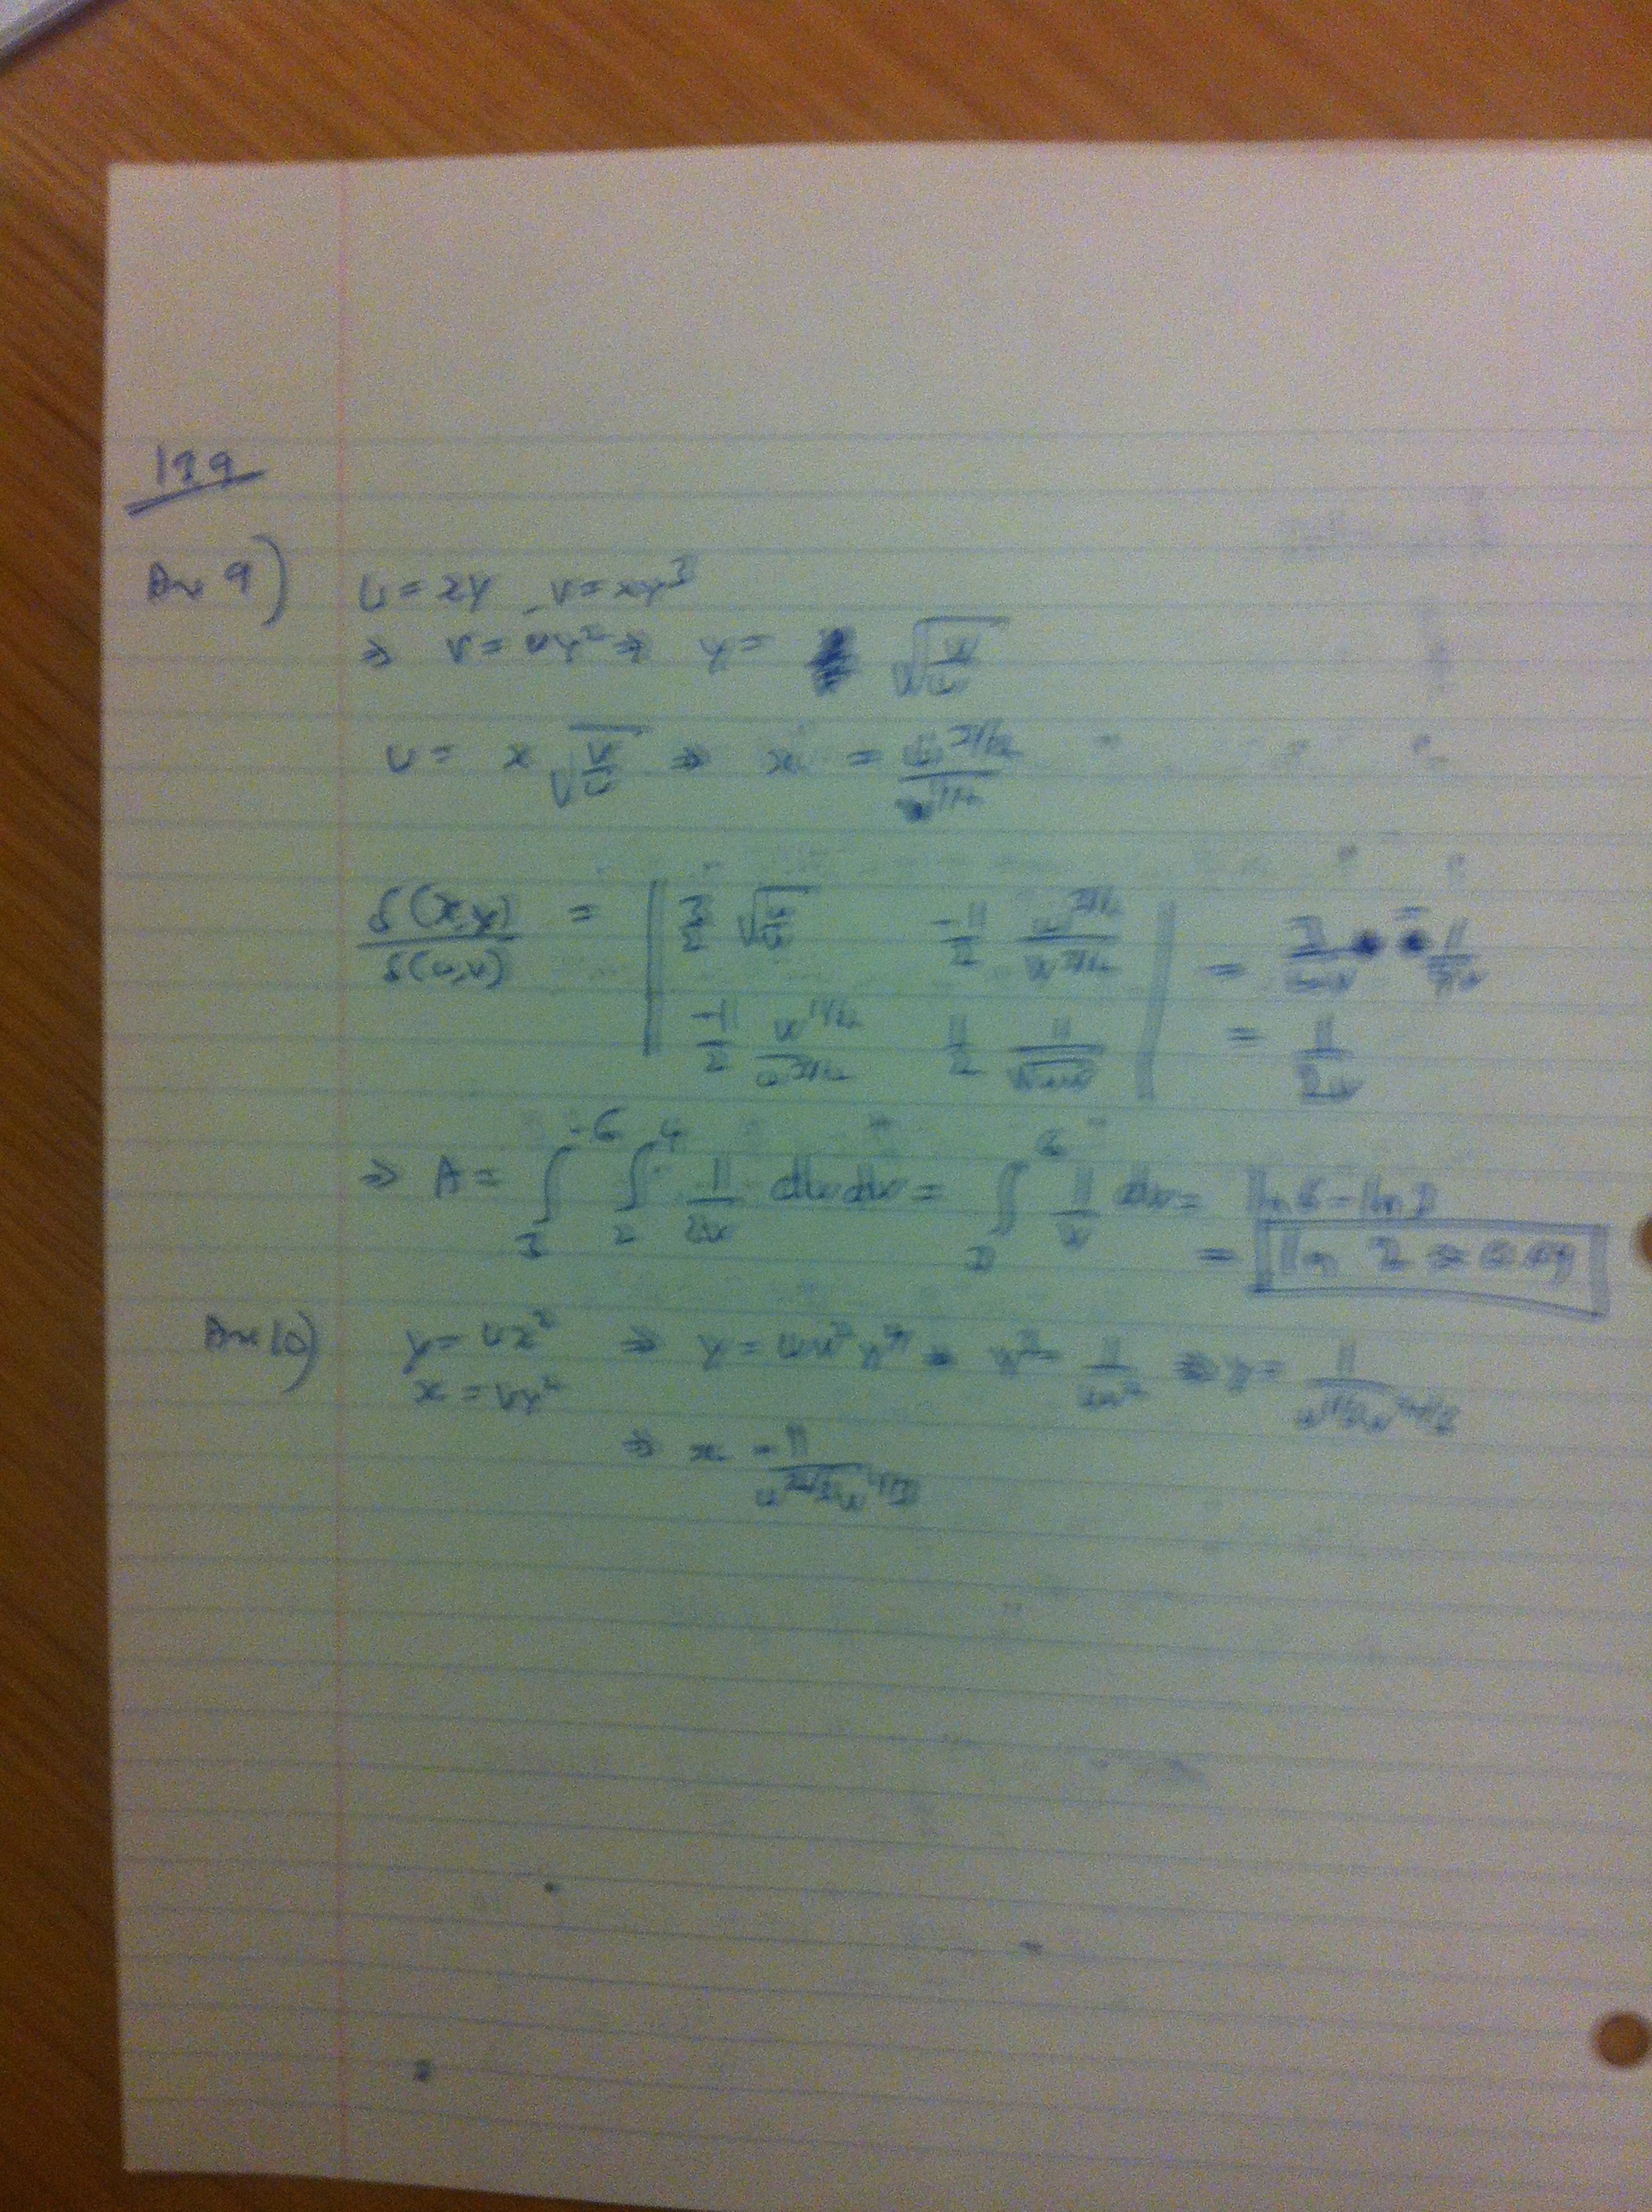 139
Ans 9) u = xy, v = xy³
⇒ v = uy² ⇒ y = √(v/u)
u = x √(v/u) ⇒ x = u^(3/2)/v^(1/2)
δ(x,y)/δ(u,v) = | 3/2 √(u/v) -1/2 u^(3/2)/v^(3/2) | = 3/4v - 1/4v
| -1/2 v^(1/2)/u^(3/2) 1/2 1/√(uv) | = 1/2v
⇒ A = ∫₃⁶ ∫₂⁴ 1/2v du dv = ∫₃⁶ 1/v dv = ln 6 - ln 3
= ln 2 ≈ 0.69
Ans 10) y = ux² ⇒ y = uv²y⁴ ⇒ y³ = 1/uv² ⇒ y = 1/u^(1/3)v^(2/3)
x = vy²
⇒ x = 1/u^(2/3)v^(1/3)